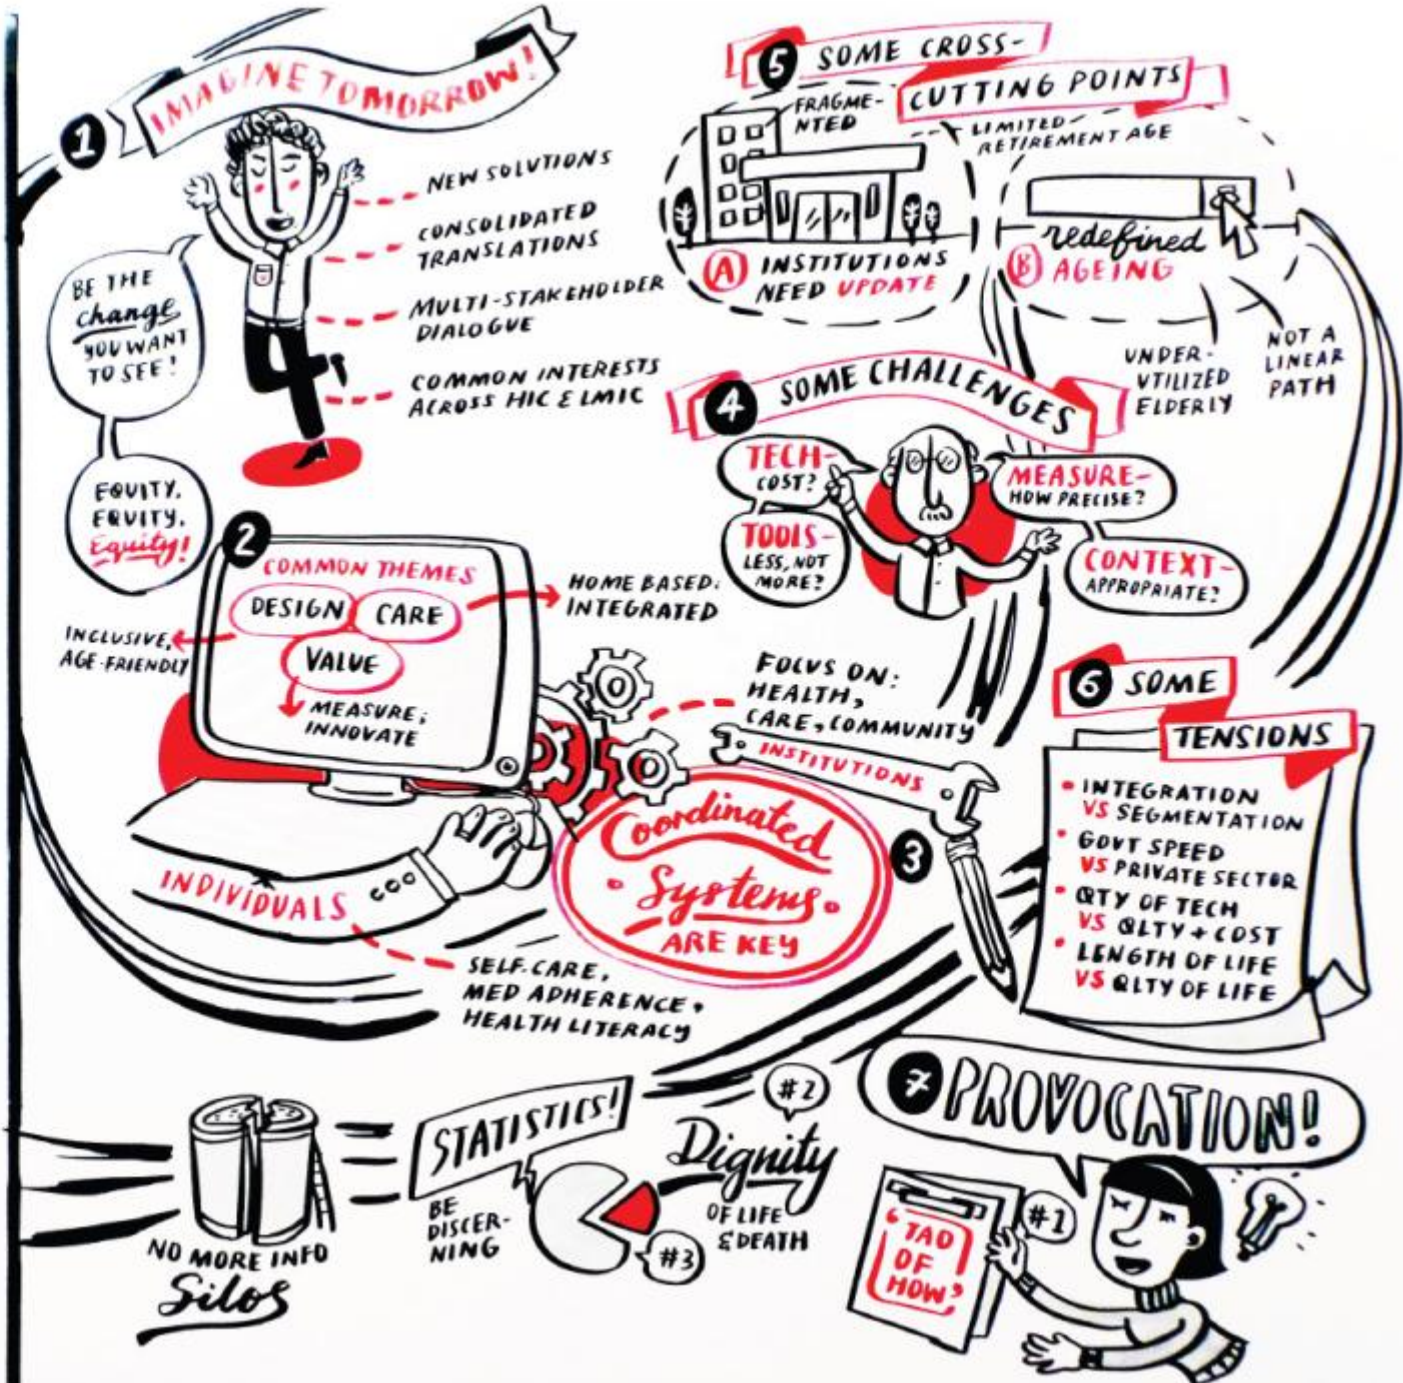 1
IMAGINE TOMORROW!
NEW SOLUTIONS
CONSOLIDATED
TRANSLATIONS
MULTI-STAKEHOLDER
DIALOGUE
COMMON INTERESTS
ACROSS HIC & LMIC
BE THE
change
YOU WANT
TO SEE!
EQUITY,
EQUITY,
Equity!
2
COMMON THEMES
DESIGN
CARE
VALUE
HOME BASED;
INTEGRATED
INCLUSIVE,
AGE-FRIENDLY
MEASURE;
INNOVATE
INDIVIDUALS
SELF-CARE,
MED ADHERENCE,
HEALTH LITERACY
3
Coordinated
Systems
ARE KEY
INSTITUTIONS
FOCUS ON:
HEALTH,
CARE, COMMUNITY
4
SOME CHALLENGES
TECH-
COST?
TOOLS-
LESS, NOT
MORE?
MEASURE-
HOW PRECISE?
CONTEXT-
APPROPRIATE?
5
SOME CROSS-
CUTTING POINTS
FRAGME-
NTED
A INSTITUTIONS
NEED UPDATE
LIMITED
RETIREMENT AGE
redefined
B AGEING
UNDER-
UTILIZED
ELDERLY
NOT A
LINEAR
PATH
6
SOME
TENSIONS
• INTEGRATION
VS SEGMENTATION
• GOVT SPEED
VS PRIVATE SECTOR
• QTY OF TECH
VS QLTY + COST
• LENGTH OF LIFE
VS QLTY OF LIFE
7
PROVOCATION!
#1
"TAO
OF
HOW"
#2
Dignity
OF LIFE
& DEATH
#3
STATISTICS!
BE
DISCER-
NING
NO MORE INFO
Silos